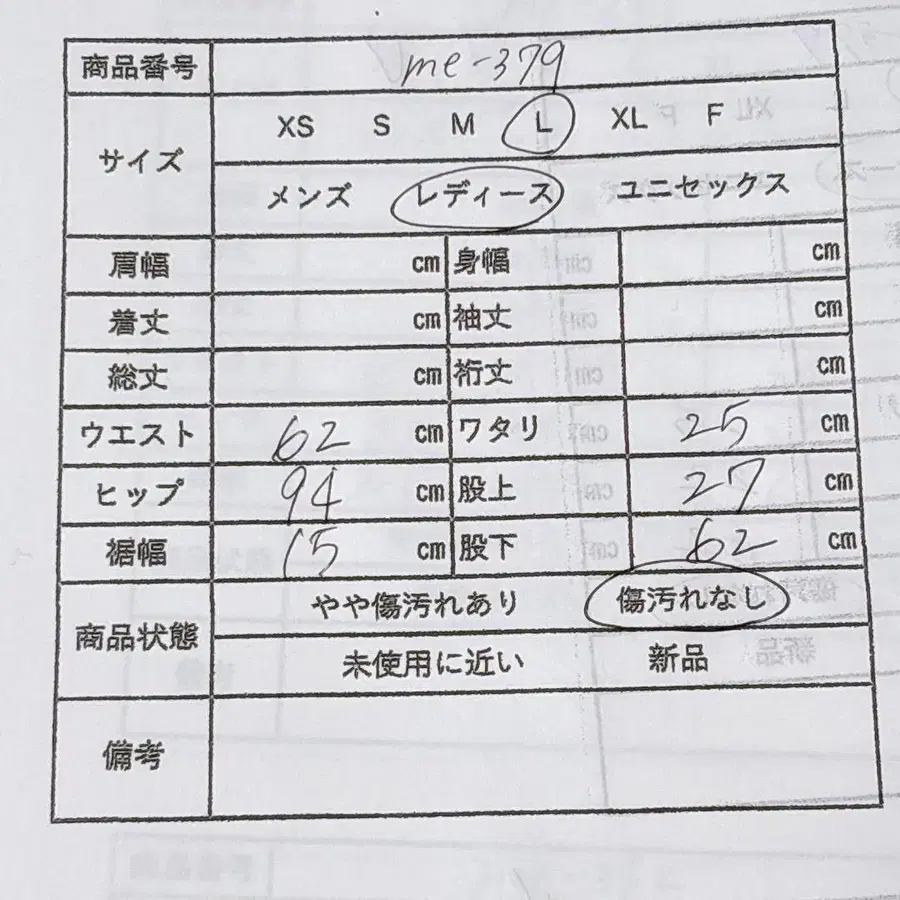 商品番号 me-379
サイズ XS S M L XL F
メンズ レディース ユニセックス
肩幅 cm 身幅 cm
着丈 cm 袖丈 cm
総丈 cm 裄丈 cm
ウエスト 62 cm ワタリ 25 cm
ヒップ 94 cm 股上 27 cm
裾幅 15 cm 股下 62 cm
商品状態 やや傷汚れあり 傷汚れなし
未使用に近い 新品
備考
商品番号